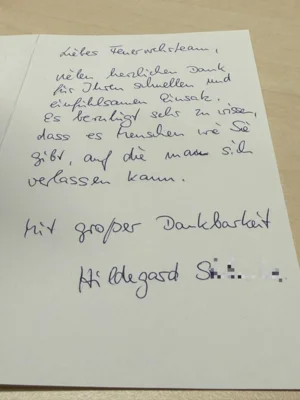 Liebes Feuerwehrteam,
vielen herzlichen Dank
für Ihren schnellen und
einfühlsamen Einsatz.
Es beruhigt sehr zu wissen,
dass es Menschen wie Sie
gibt, auf die man sich
verlassen kann.
Mit großer Dankbarkeit
Hildegard